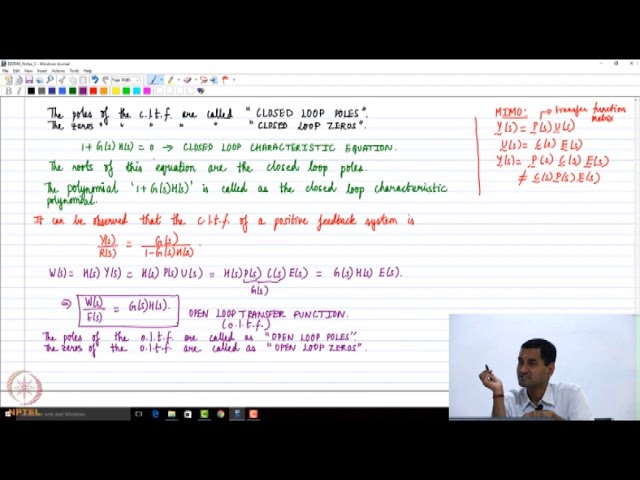 ED2040_Notes_2 - Windows Journal
File Edit View Insert Actions Tools Help
Page Width
The poles of the c.l.t.f. are called "CLOSED LOOP POLES".
The zeros " " " " " "CLOSED LOOP ZEROS".
1+G(s)H(s)=0 → CLOSED LOOP CHARACTERISTIC EQUATION.
The roots of this equation are the closed loop poles.
The polynomial '1+G(s)H(s)' is called as the closed loop characteristic
polynomial.
It can be observed that the c.l.t.f. of a positive feedback system is
Y(s)/R(s) = G(s)/1-G(s)H(s).
W(s)= H(s)Y(s) = H(s)P(s)U(s) = H(s)P(s)C(s)E(s) = G(s)H(s)E(s).
G(s)
⇒ W(s)/E(s) = G(s)H(s). OPEN LOOP TRANSFER FUNCTION.
(o.l.t.f.)
The poles of the o.l.t.f. are called as "OPEN LOOP POLES".
The zeros of the o.l.t.f. are called as "OPEN LOOP ZEROS".
MIMO: → transfer function
matrix
Y(s)= P(s)U(s)
U(s)= C(s)E(s)
Y(s)= P(s)C(s)E(s)
≠ C(s)P(s)E(s)
NPTEL